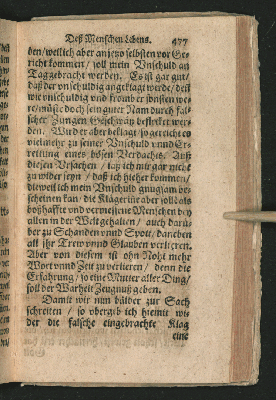 Deß Menschen Lebens. 477
ben/ weil ich aber anjetzo selbsten vor Ge-
richt kommen/ soll mein Vnschuld an
Tag gebracht werden. Es ist gar gut/
daß der vnschuldig angeklagt werde/ deñ
wie vnschuldig vnd from̃ er sonsten we-
re/ müste doch sein guter Nam durch fal-
scher Zungen Geschwätz befleckt wer-
den. Wird er aber beklagt/ so gereicht es
vielmehr zu seiner Vnschuld vnnd Er-
rettung eines bösen Verdachts. Auß
diesen Vrsachen/ laß ich mir gar nicht
zu wider seyn/ daß ich hieher kommen/
dieweil ich mein Vnschuld gnugsam be-
scheinen kan/ die Kläger für aber soll als
boßhaffte vnd vermessene Menschen bey
allen in der Welt gehalten/ auch darü-
ber zu Schanden vnnd Spott/ daneben
all ihr Trew vnnd Glauben verlieren.
Aber von diesem ist ohn Noht mehr
Wort vnnd Zeit zu verlieren/ denn die
Erfahrung/ so eine Mutter aller Ding/
soll der Warheit Zeugnuß geben.
Damit wir nun bälder zur Sach
schreiten/ so vbergib ich hiemit wi-
der die falsche eingebrachte Klag
eine